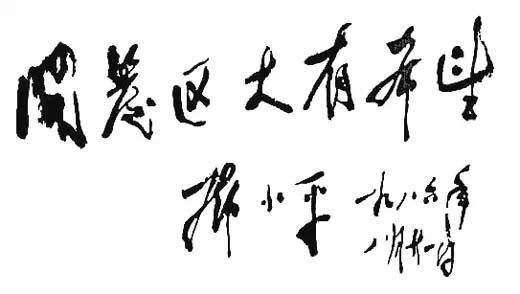 開發区大有希望
鄧小平 一九八六年
八月廿一日